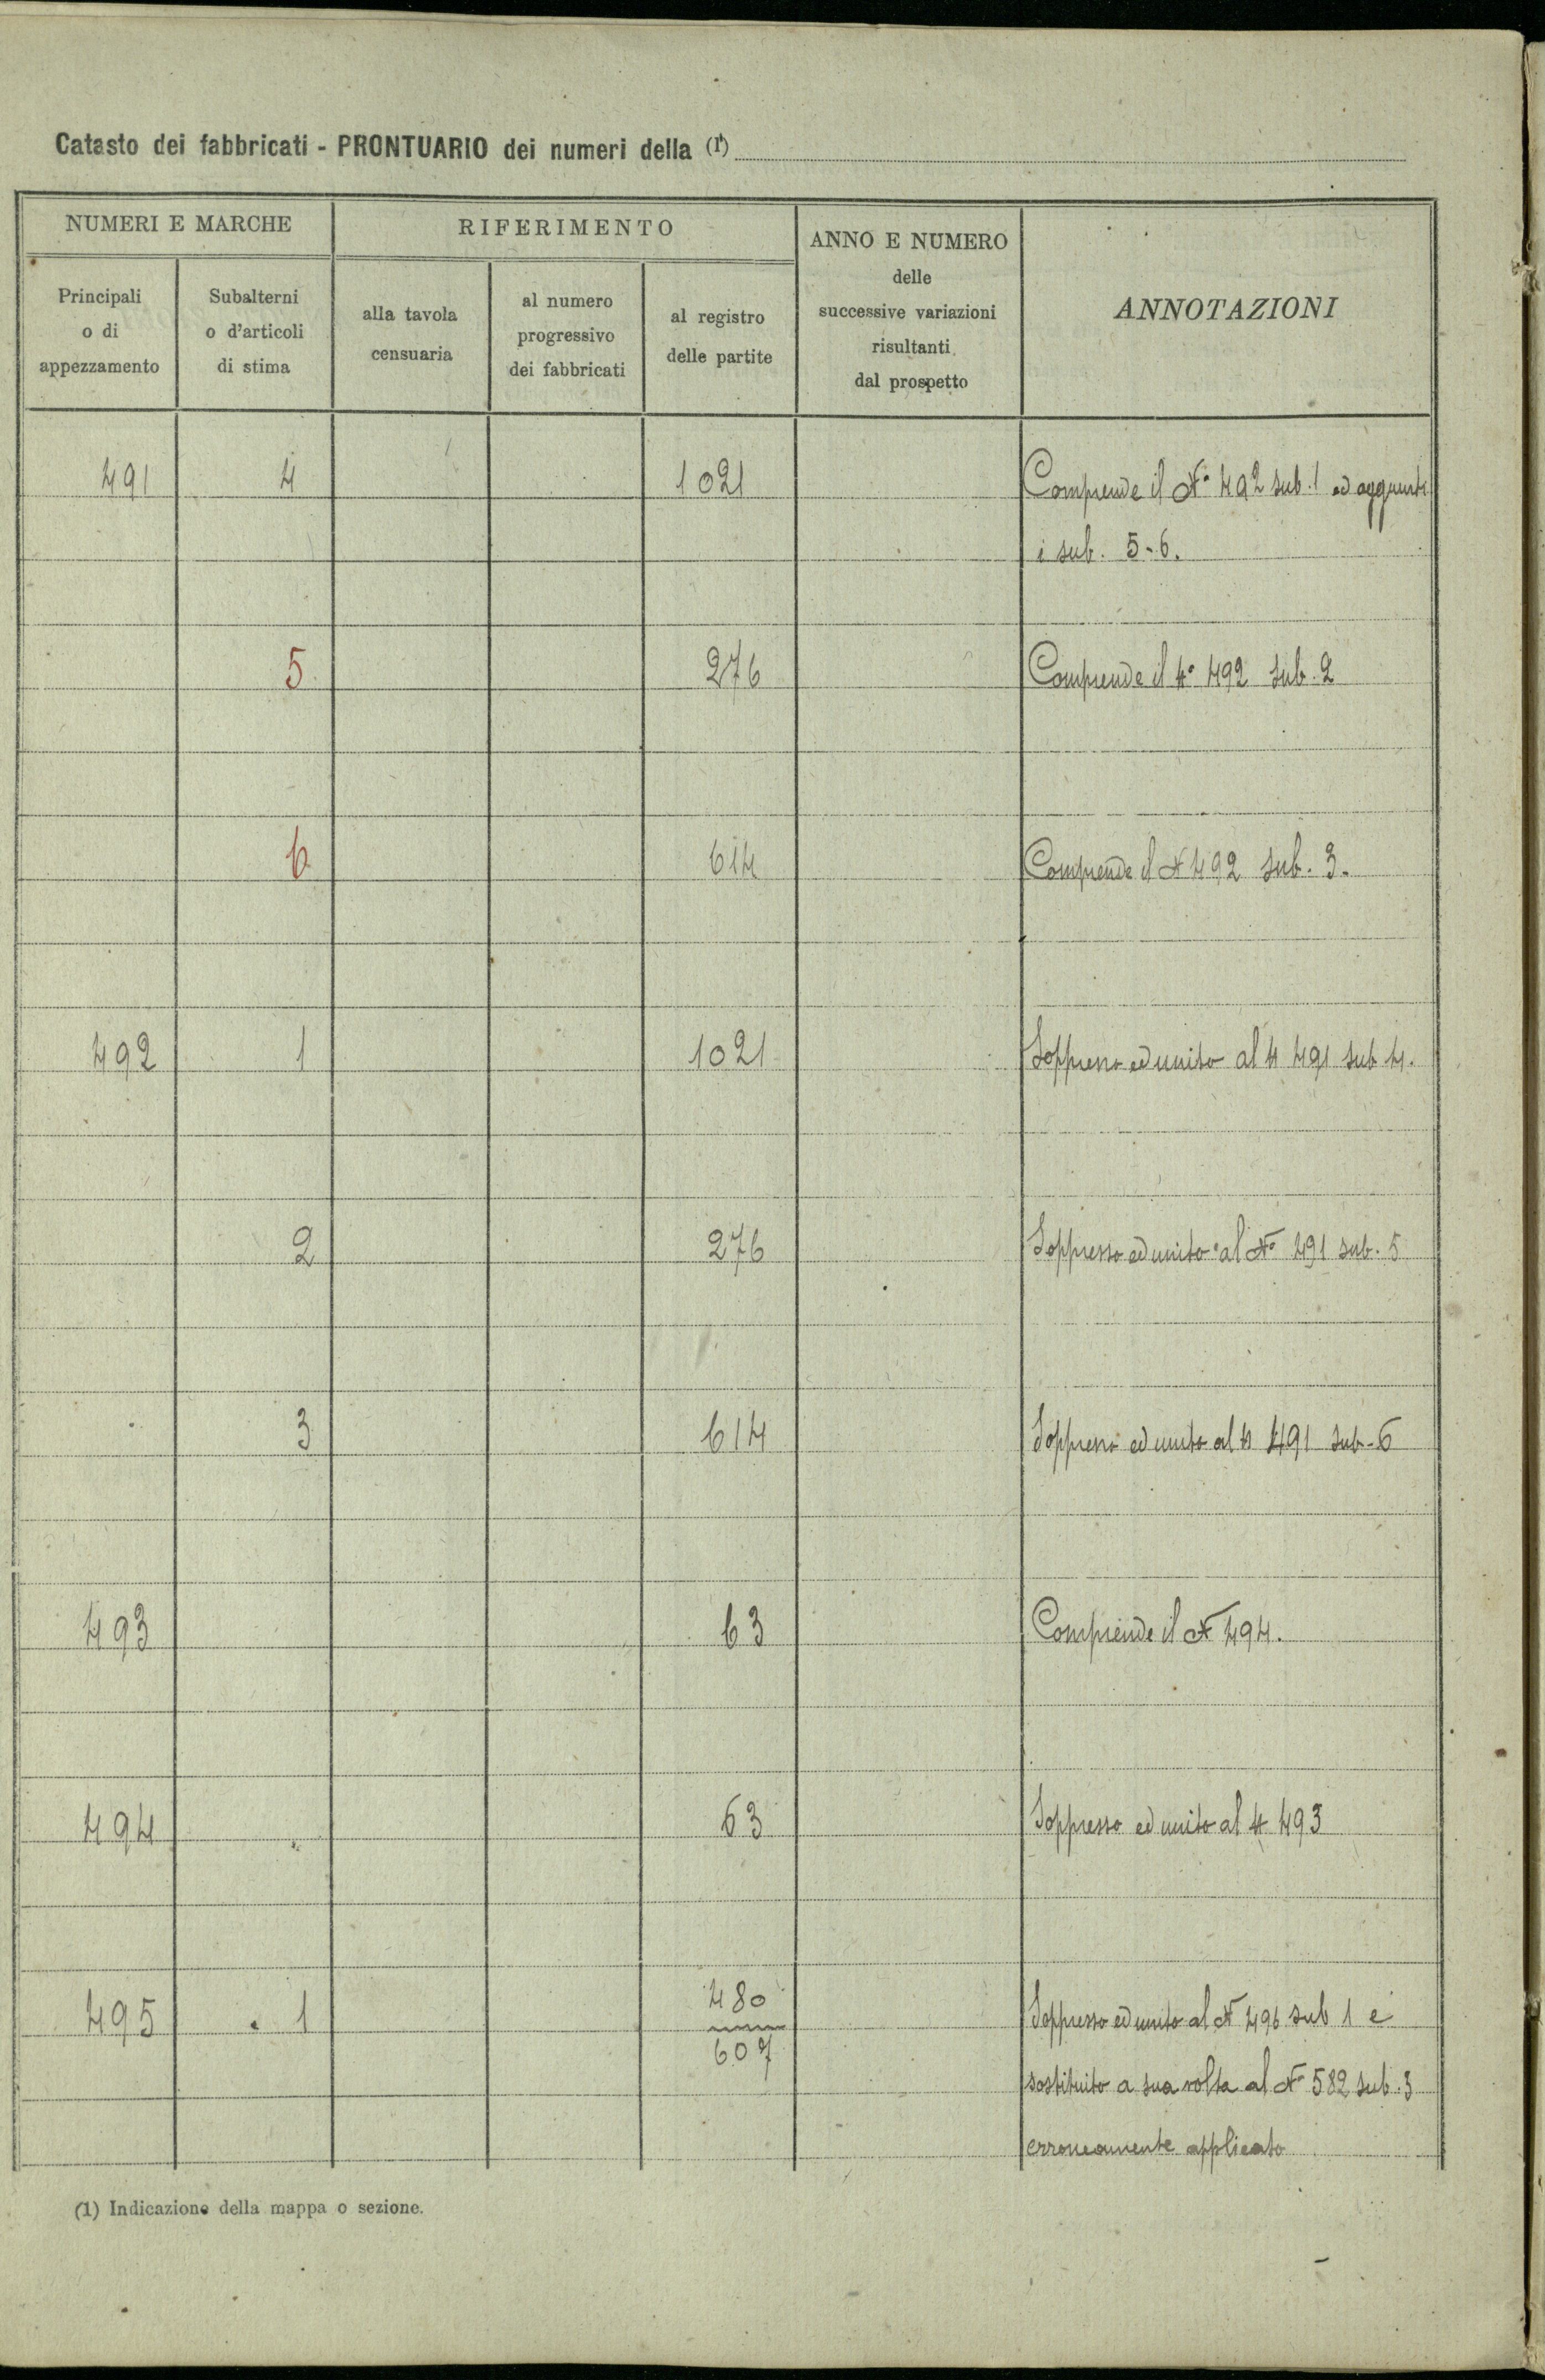 Catasto dei fabbricati - PRONTUARIO dei numeri della (1)
NUMERI E MARCHE
RIFERIMENTO
ANNO E NUMERO
delle
successive variazioni
risultanti
dal prospetto
ANNOTAZIONI
Principali
o di
appezzamento
Subalterni
o d'articoli
di stima
alla tavola
censuaria
al numero
progressivo
dei fabbricati
al registro
delle partite
491 4 1021 Comprende il No 492 sub. 1 ed aggiunti
i sub. 5-6.
5 276 Comprende il No 492 sub. 2
6 614 Comprende il N 492 sub. 3.
492 1 1021 Soppresso ed unito al N 491 sub 4.
2 276 Soppresso ed unito al No 491 sub. 5
3 614 Soppresso ed unito al N 491 sub-6
493 63 Comprende il N 494.
494 63 Soppresso ed unito al N 493
495 1 480 Soppresso ed unito al N 496 sub 1 e
607
sostituito a sua volta al No 582 sub. 3
erroneamente applicato
(1) Indicazione della mappa o sezione.